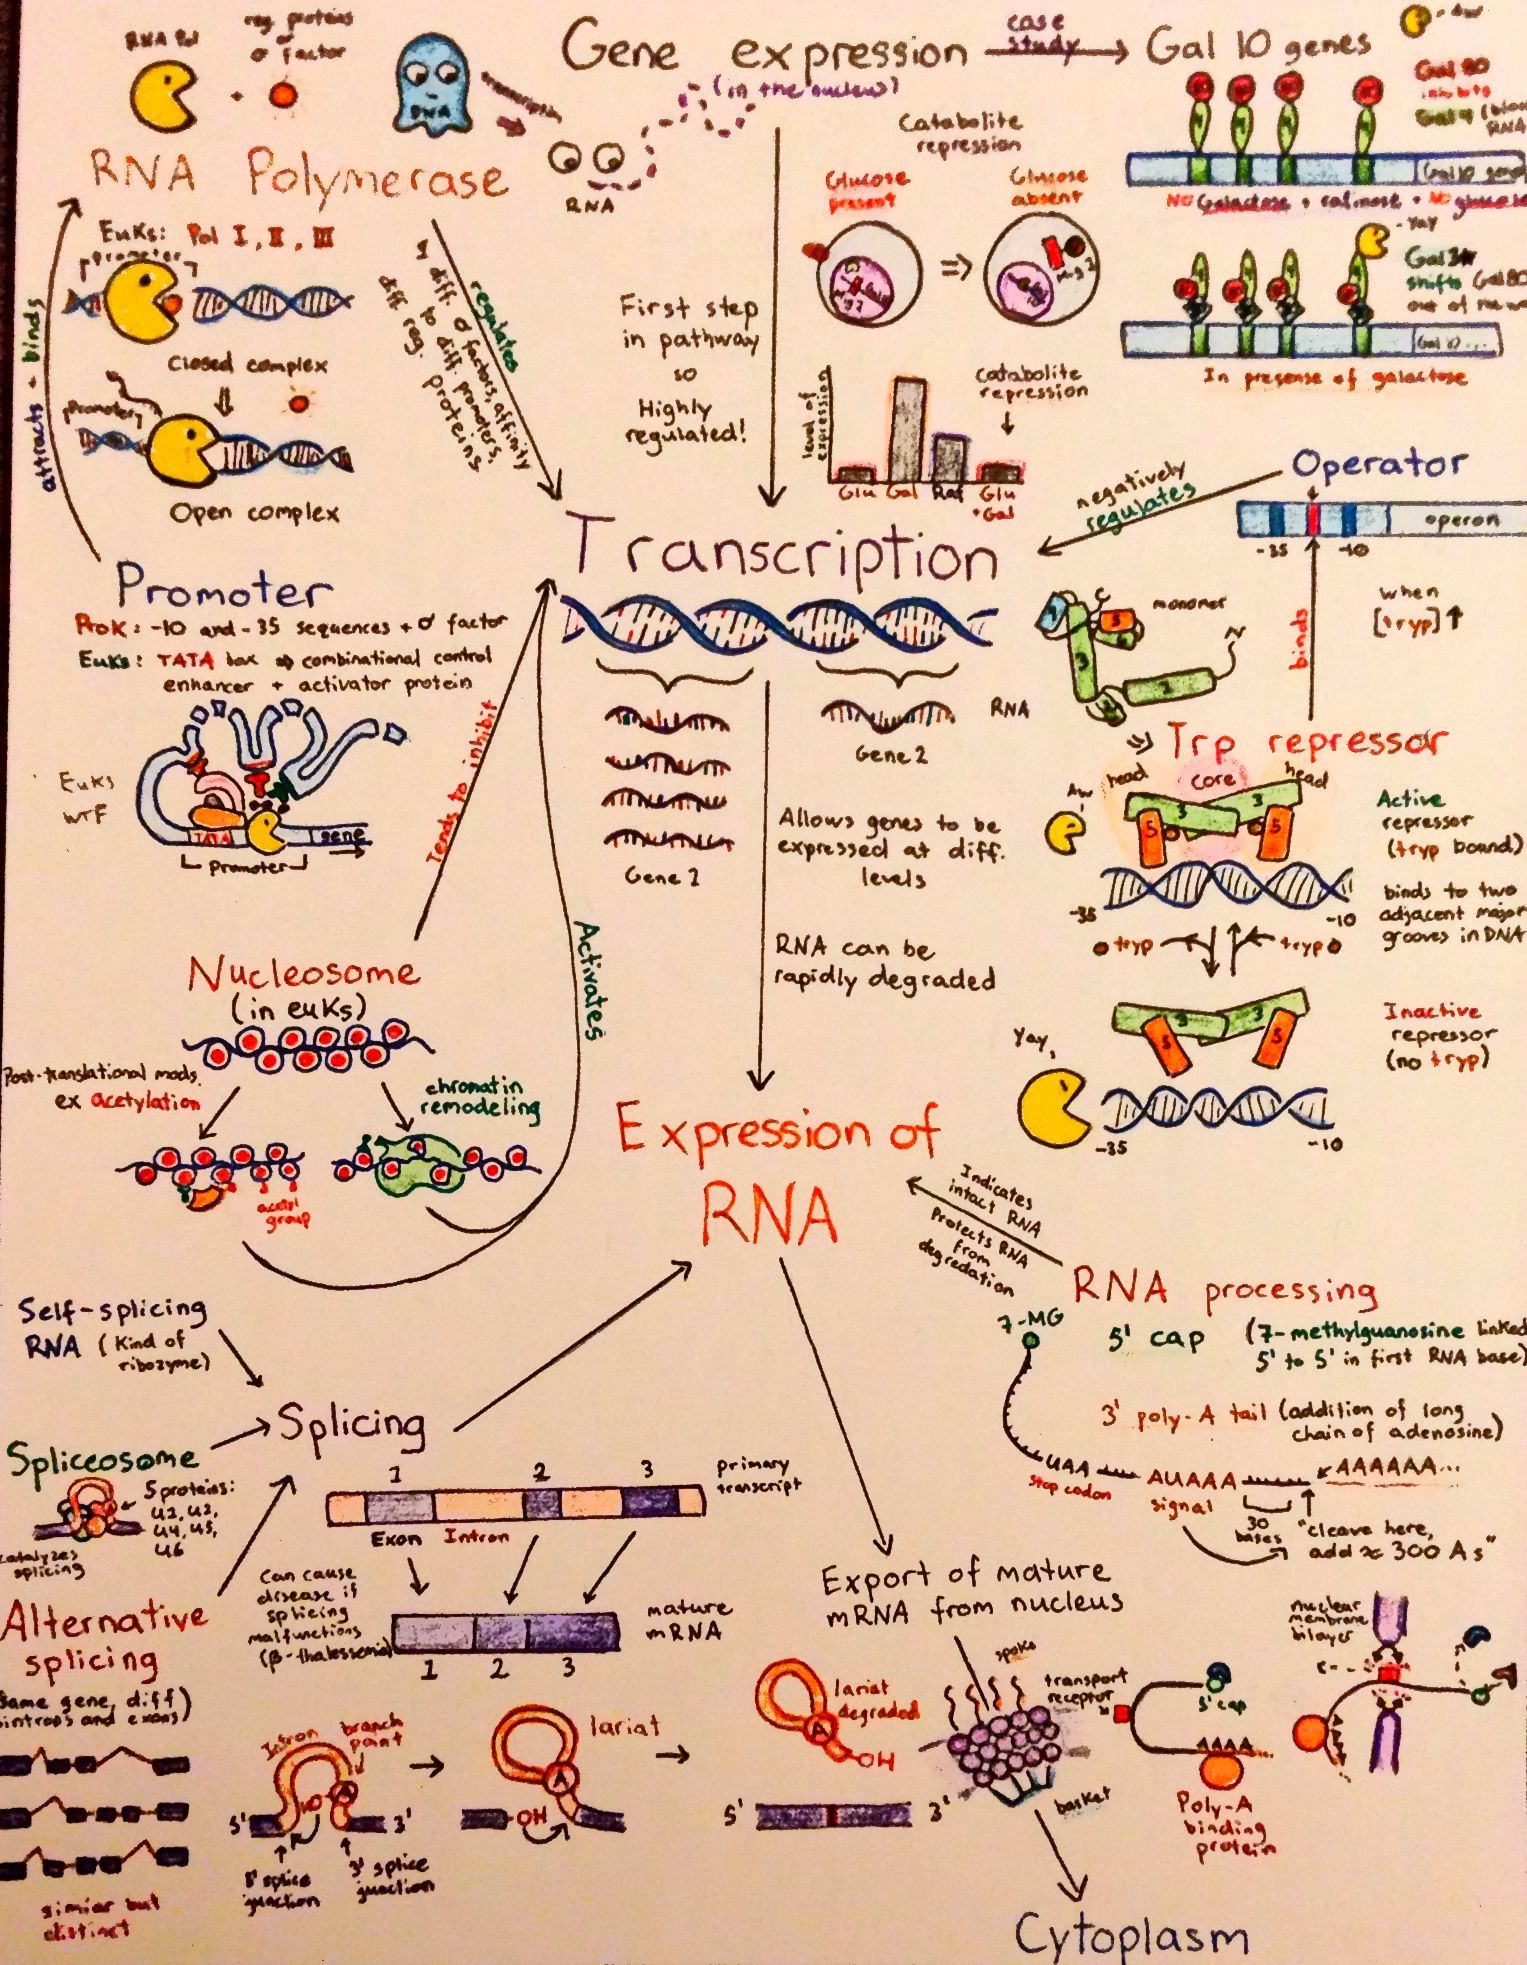 RNA Pol
+
reg. proteins
or
σ factor
DNA
transcription
RNA
RNA Polymerase
Gene expression
(in the nucleus)
case
study
Gal 10 genes
- Aw
Gal 80
inhibits
Gal 4
RNA
4 4 4 4
NO Galactose + rafinose + NO glucose
- Yay
shifts Gal 80
out of
In presense of galactose
Catabolite
repression
Glucose
present
Glucose
absent
=>
level of
expression
Glu Gal Raf Glu
+Gal
Catabolite
repression
First step
in pathway
so
Highly
regulated!
regulates
4 diff. σ factors, affinity
to diff. promoters,
diff reg. proteins
Euks: Pol I, II, III
promoter
Closed complex
promoter
Open complex
attracts + binds
Promoter
Prok: -10 and -35 sequences + σ factor
Euks: TATA box => combinational control
enhancer + activator protein
Euks
WTF
TATA
gene
Promoter
Tends to inhibit
Activates
Transcription
Gene 1
Gene 2
RNA
Allows genes to be
expressed at diff.
levels
RNA can be
rapidly degraded
negatively
regulates
Operator
operon
-35 -10
binds
when
[tryp] ↑
monomer
C
N
=> Trp repressor
head core head
Aw
3 3
5 5
-35 -10
Active
repressor
(tryp bound)
binds to two
adjacent major
grooves in DNA
tryp tryp
3 3
5 5
Yay,
-35 -10
Inactive
repressor
(no tryp)
Nucleosome
(in euks)
Post-translational mods.
ex acetylation
chromatin
remodeling
acetyl
group
Expression of
RNA
Indicates
intact RNA
Protects RNA
from
degredation
RNA processing
7-MG
5' cap (7-methylguanosine linked
5' to 5' in first RNA base)
3' poly-A tail (addition of long
chain of adenosine)
UAA AUAAA AAAAAA...
stop codon signal
30
bases
"cleave here,
add ≈ 300 As"
Self-splicing
RNA (Kind of
ribozyme)
Splicing
Spliceosome
5 proteins:
U1, U2,
U4, U5,
U6
catalyzes
splicing
1 2 3
primary
transcript
Exon Intron
Can cause
disease if
splicing
malfunctions
(β-thalassemia)
mature
mRNA
1 2 3
Alternative
splicing
(same gene, diff)
introns and exons)
similar but
distinct
Intron branch
point
HO A
5' 3'
5' splice
junction
3' splice
junction
lariat
A
OH
lariat
degraded
A
OH
5' 3'
Export of mature
mRNA from nucleus
spoke
basket
transport
receptor
5' cap
AAAA...
Poly-A
binding
protein
nuclear
membrane
bilayer
Cytoplasm